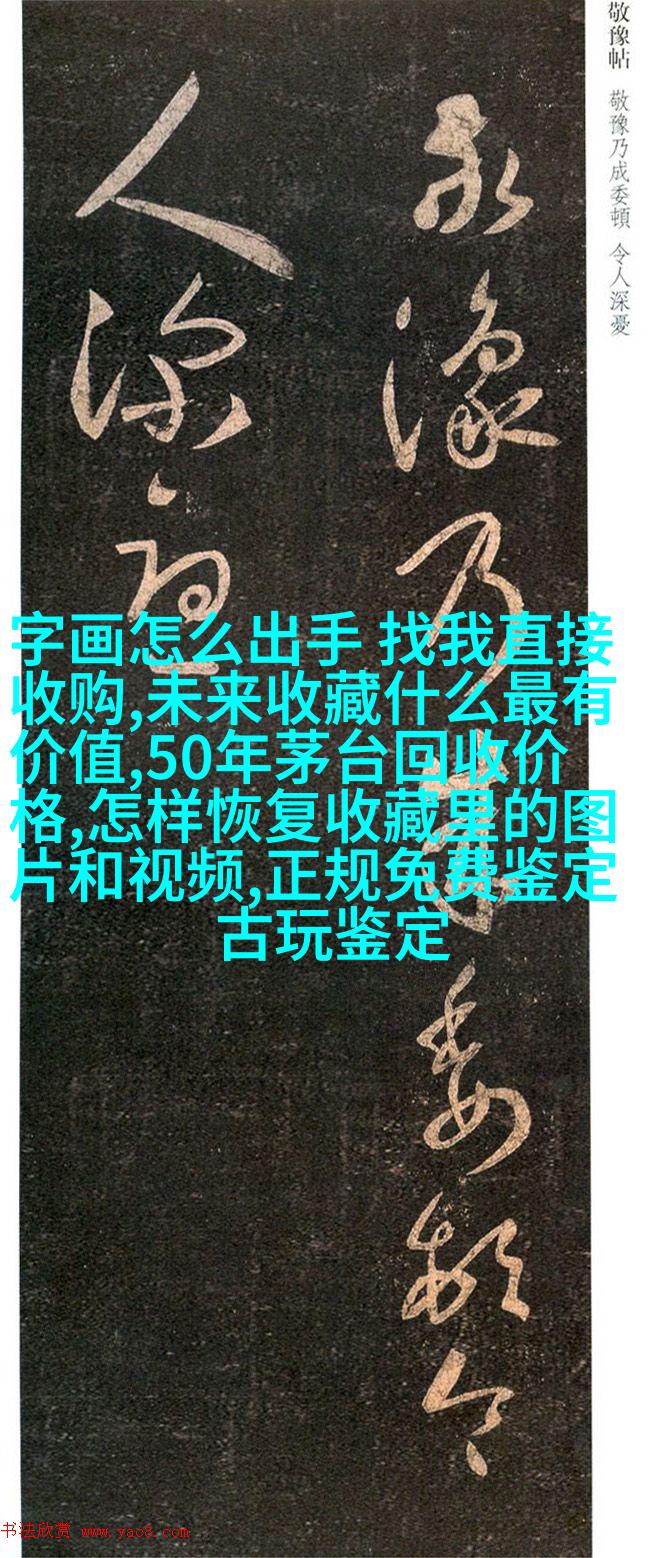 敬豫帖 敬豫乃成委頓 令人深憂
敬豫乃成委頓令
人深憂
字画怎么出手 找我直接
收购,未来收藏什么最有
价值,50年茅台回收价
格,怎样恢复收藏里的图
片和视频,正规免费鉴定
古玩鉴定
书法欣赏 www.yac8.com